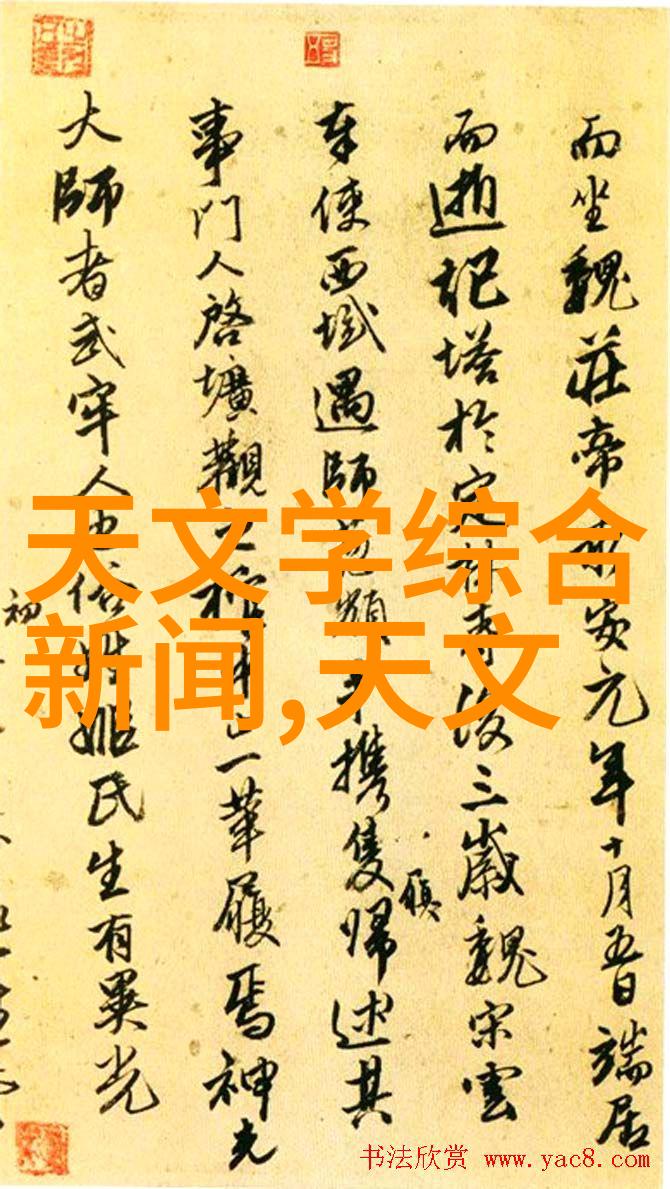 而坐魏莊帝永安元年十月五日端居
而逝記塔於定林寺後三歲魏宋雲
奉使西域遇師葱嶺手攜隻履歸述其
事門人啓壙觀之惟革一華履焉神光
大師者武牢人也俗姓姬氏生有異光
初
天文学综合
新闻,天文
书法欣赏 www.yac8.com